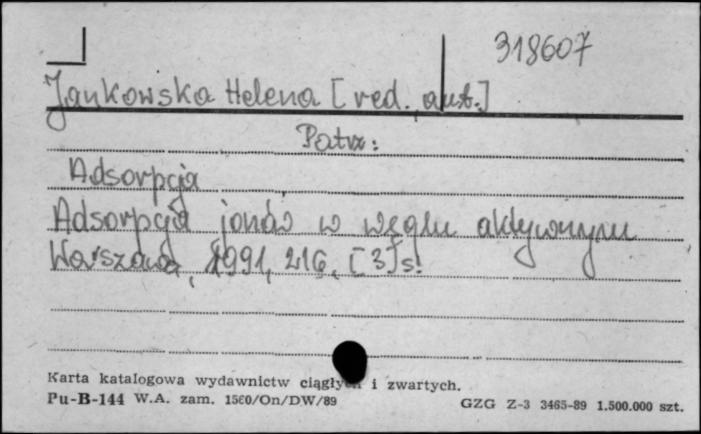 318607
Jankowska Helena [red. aut.]
Patrz:
Adsorpcja
Adsorpcja jonów w węglu aktywnym
Warszawa, 1991, 216, [3] s.
Karta katalogowa wydawnictw ciągłych i zwartych.
Pu-B-144 W.A. zam. 1560/On/DW/89
GZG Z-3 3465-89 1.500.000 szt.